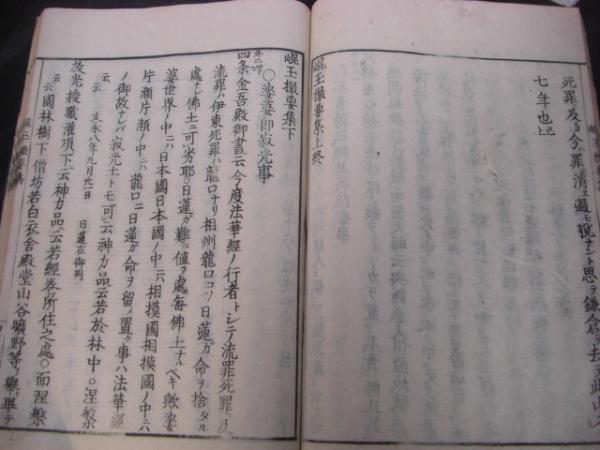 死罪及今罪滅過脱ナント思テ鎌倉去此山
七年也 已上
崐玉撮要集上終
崐玉撮要集下
○娑婆即寂光事
四条金吾殿御書云今度法華經ノ行者トシテ流罪死罪及
流罪ハ伊東死罪ハ龍口ナリ相州龍口コソ日蓮カ命ヲ捨タル
處ナレ佛土ニ可劣耶日蓮カ難値フ處毎佛土ナルヘキ歟娑
婆世界ノ中ニハ日本國日本國ノ中ニハ相模國相模國ノ中ニハ
片瀬片瀬ノ中ニハ龍口ニ日蓮カ命ヲ留置事ハ法華經
ノ御故ナレハ寂光土トモ可云神力品云若於林中○涅槃
云云 文永八年九月廿一日 日蓮在御判
最光授職灌頂下云神力品云若經卷所住之處○而涅槃
云云園林樹下僧坊若白衣舍殿堂山谷曠野等舉畢テ